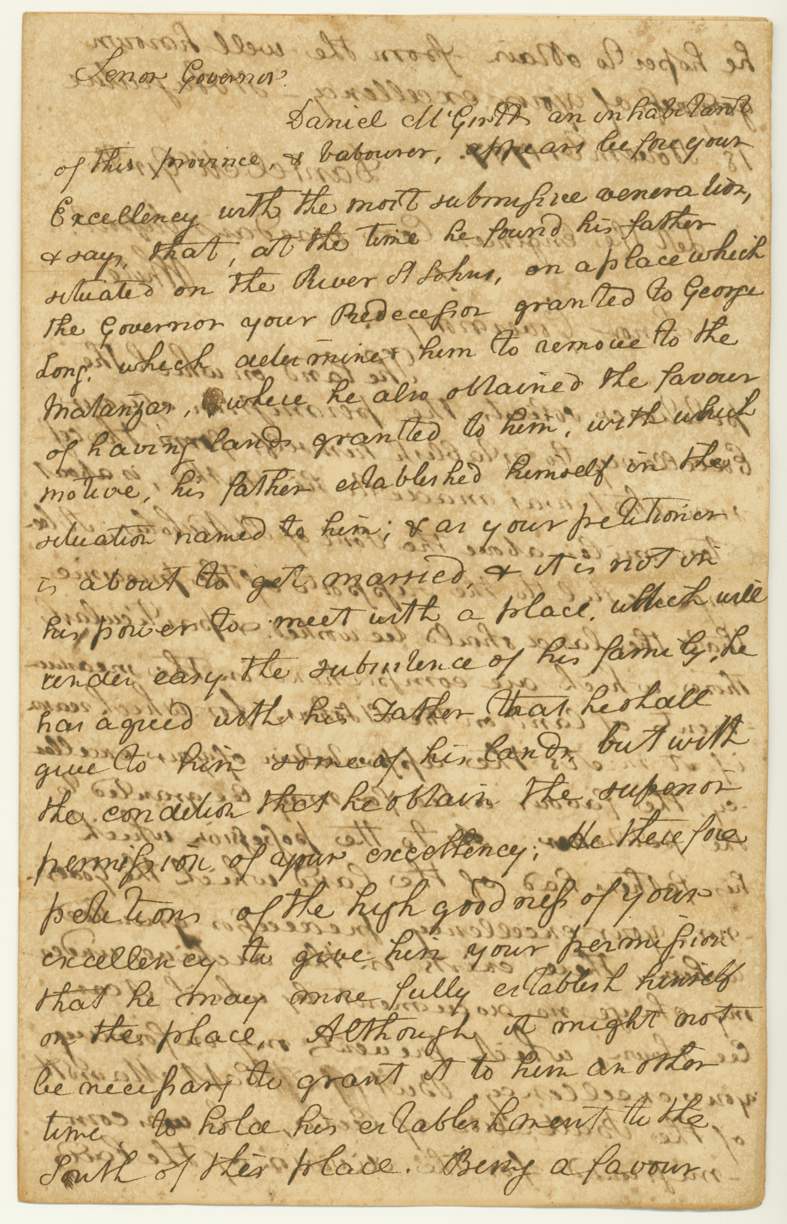 Senor Governor.
Daniel McGirtt an inhabitant
of this province, & labourer, appears before your
Excellency with the most submissive veneration,
& says, that, at the time he found his father
situated on the River St Johns, on a place which
the Governor your Predecessor granted to George
Long, which determined him to remove to the
Matanzas, where he also obtained the favour
of having lands granted to him; with which
motive, his father established himself in the
situation named to him; & as your petitioner
is about to get married, & it is not in
his power to meet with a place, which will
render easy the subsistence of his family, he
has agreed with his Father that he shall
give to him some of his lands, but with
the condition that he obtain the superior
permission of your excellency; He therefore
petitions of the high goodness of your
excellency to give him your permission
that he may more fully establish himself
on the place, Although it might not
be necessary to grant it to him another
time, to hold his establishment to the
South of this place. Being a favour